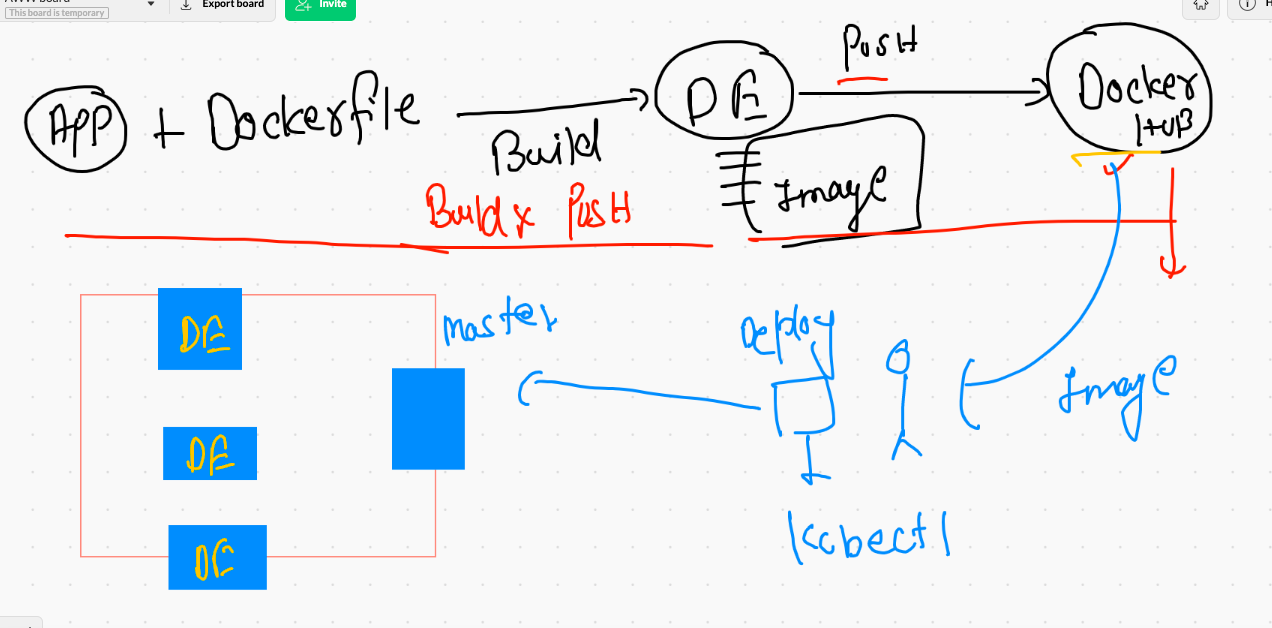 This board is temporary
Export board
Invite
APP + Dockerfile
Build
DE
Push
Docker
HUB
Image
Buildx Push
DE
DE
DE
master
Deploy
Image
kubectl